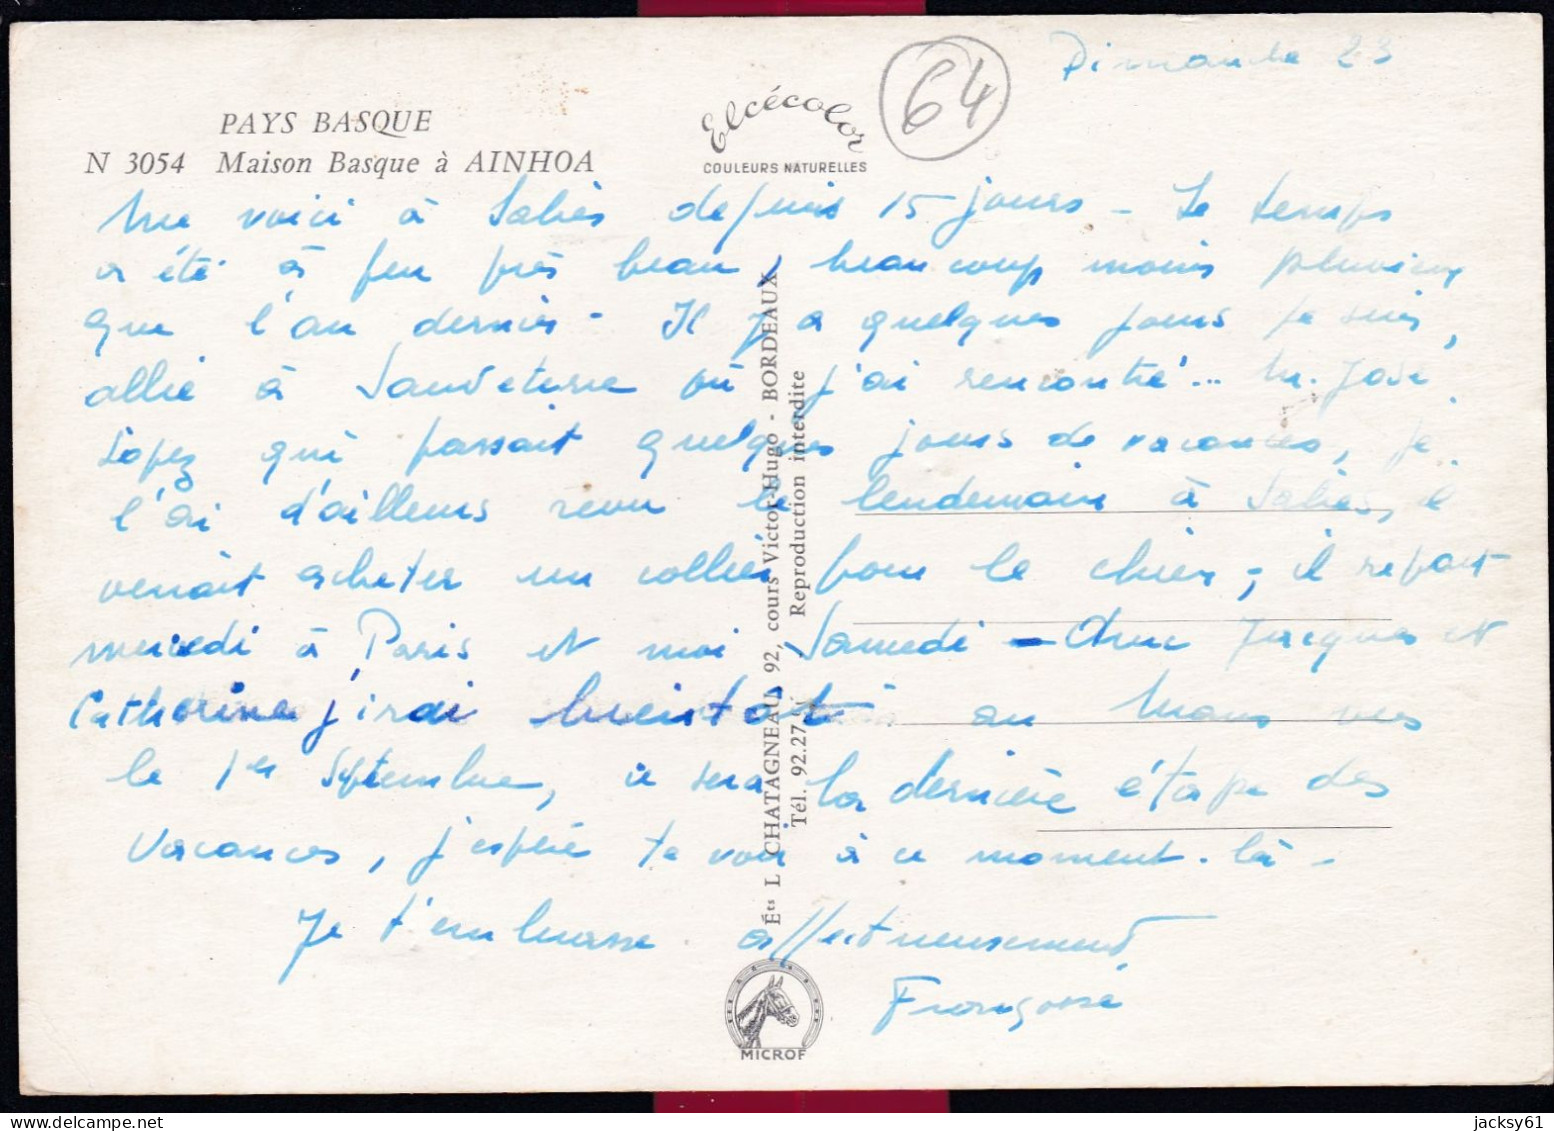 Dimanche 23
64
PAYS BASQUE
N 3054 Maison Basque à AINHOA
Elcécolor
COULEURS NATURELLES
Me voici à Salies depuis 15 jours - Le temps
a été à peu près beau, beaucoup moins pluvieux
que l'an dernier - Il y a quelques jours je suis,
allée à Sauveterre où j'ai rencontré... M. José
Lopez qui passait quelques jours de vacances, je
l'ai d'ailleurs revu le lendemain à Salies, il
venait acheter un collier pour le chien ; il repart
mercredi à Paris et moi Samedi - Avec Jacques et
Catherine j'irai bientôt au Mans vers
le 1er Septembre, ce sera la dernière étape des
vacances, j'espère te voir à ce moment-là -
Je t'embrasse affectueusement
Françoise
Éts L CHATAGNEAU, 92, cours Victor-Hugo - BORDEAUX
Tél. 92.27. Reproduction interdite
MICROF
jacksy61